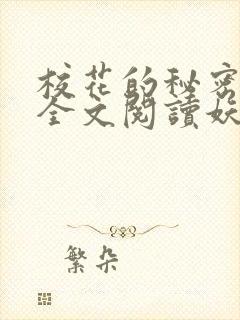 校花的秘密
全文閱讀妖
繁朵